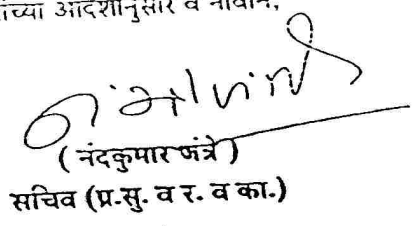 च्या आदेशानुसार व नावाने,
( नंदकुमार जंत्रे )
सचिव (प्र.सु. व र. व का.)